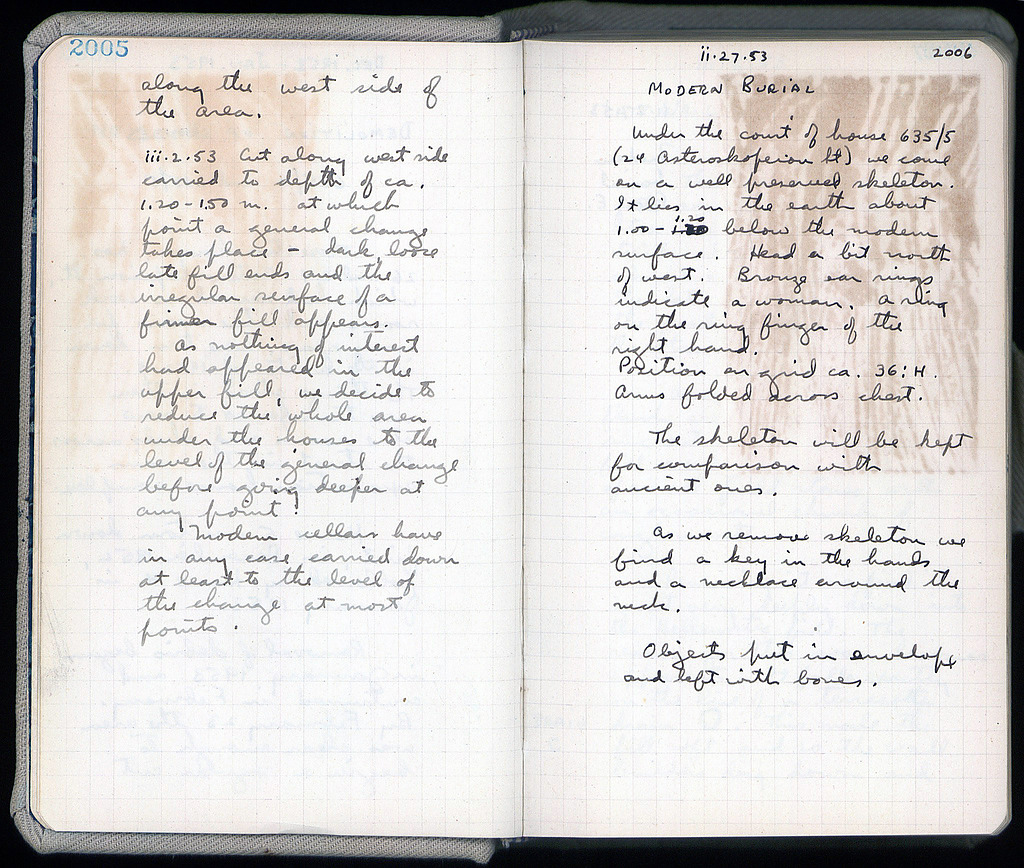 2005
along the west side of
the area.
iii.2.53 Cut along west side
carried to depth of ca.
1.20-1.50 m. at which
point a general change
takes place - dark, loose
late fill ends and the
irregular surface of a
firmer fill appears.
As nothing of interest
had appeared in the
upper fill, we decide to
reduce the whole area
under the houses to the
level of the general change
before going deeper at
any point.
Modern cellars have
in any case carried down
at least to the level of
the change at most
points.
ii.27.53 2006
MODERN BURIAL
Under the court of house 635/5
(24 Asteroskopeion St) we come
on a well preserved skeleton.
It lies in the earth about
1.00 - 1.20 below the modern
surface. Head a bit north
of west. Bronze ear rings
indicate a woman. A ring
on the ring finger of the
right hand.
Position on grid ca. 36:H.
Arms folded across chest.
The skeleton will be kept
for comparison with
ancient ones.
As we remove skeleton we
find a key in the hands
and a necklace around the
neck.
Objects put in envelope
and left with bones.